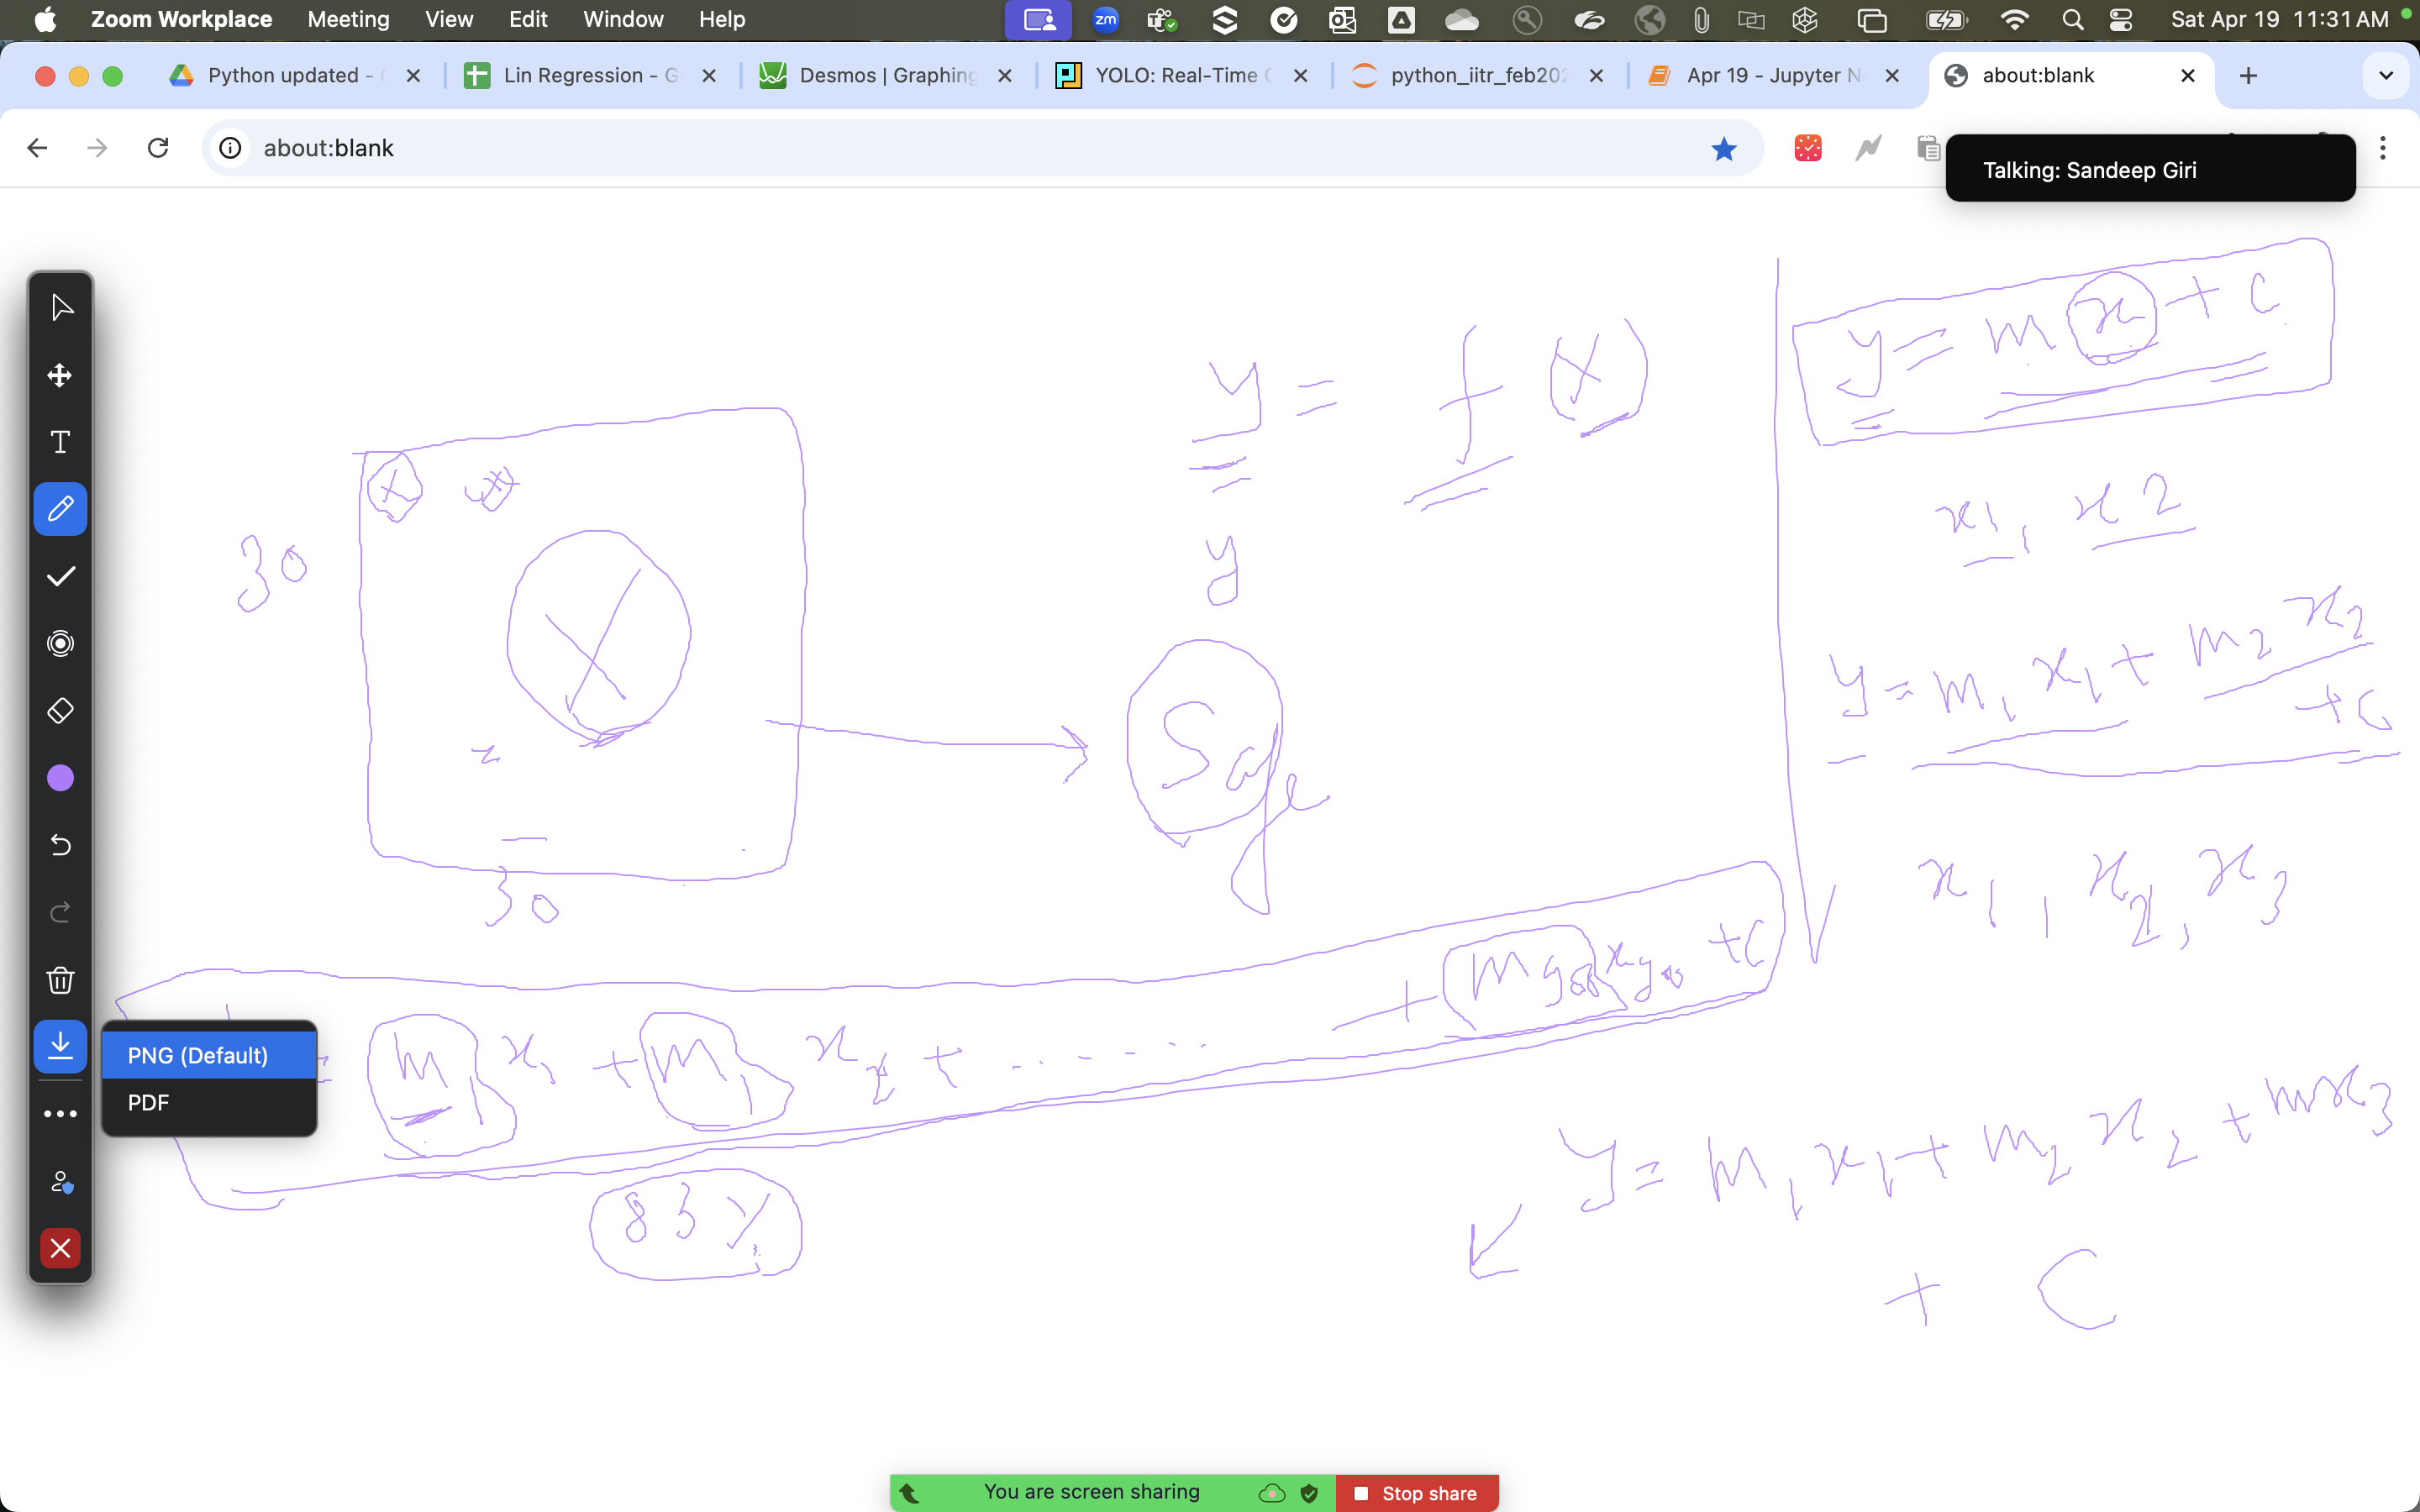 Zoom Workplace Meeting View Edit Window Help
zm
Sat Apr 19 11:31 AM
Python updated -
Lin Regression - G
Desmos | Graphing
YOLO: Real-Time
python_iitr_feb202
Apr 19 - Jupyter N
about:blank
about:blank
Talking: Sandeep Giri
T
y = f(x)
y = mx + c
x x
30
X
30
y
Sage
x1, x2
y = m1 x1 + m2 x2
+ c
x1, x2, x3
= m1 x1 + m x2 + ...... + m x + c
83%
y = m1 x1 + m2 x2 + m x3
+ C
PNG (Default)
PDF
You are screen sharing
Stop share